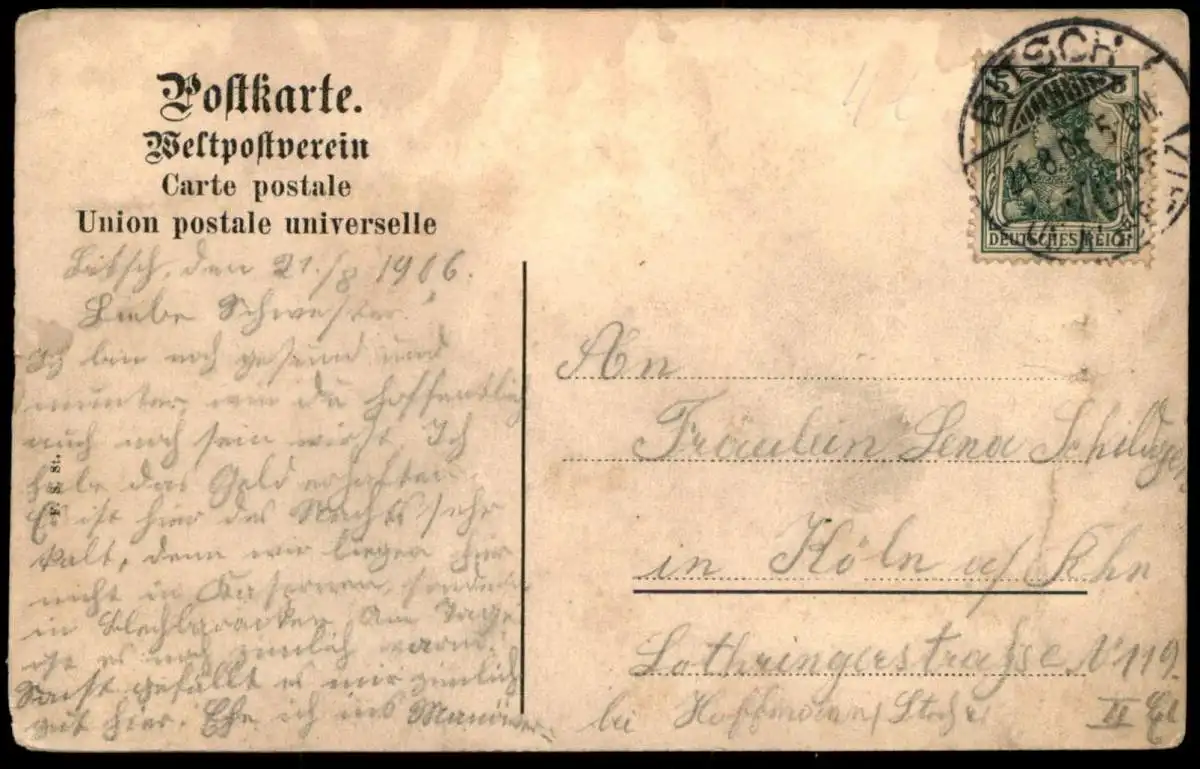 Postkarte.
Weltpostverein
Carte postale
Union postale universelle
BITSCH
21.8.06. 5
DEUTSCHES REICH
Bitsch, den 21./8 1906.
Liebe Schwester!
Ich bin noch gesund und
munter, wie du hoffentlich
auch noch sein wirst. Ich
habe das Geld erhalten.
Es ist hier des Nachts sehr
kalt, denn wir liegen hier
nicht in Kasernen, sondern
in Blechbaracken. Am Tage
ist es noch ziemlich warm.
Sonst gefällt es mir ziemlich
gut hier. Ehe ich ins Manöver
F. S. St.
An
Fräulein Lena
in Köln a/ Rhn
Lothringerstraße N° 119.
bei Hoffmann II